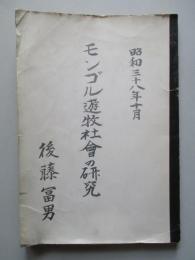 昭和三十八年十月
モンゴル遊牧社會の研究
後藤冨男